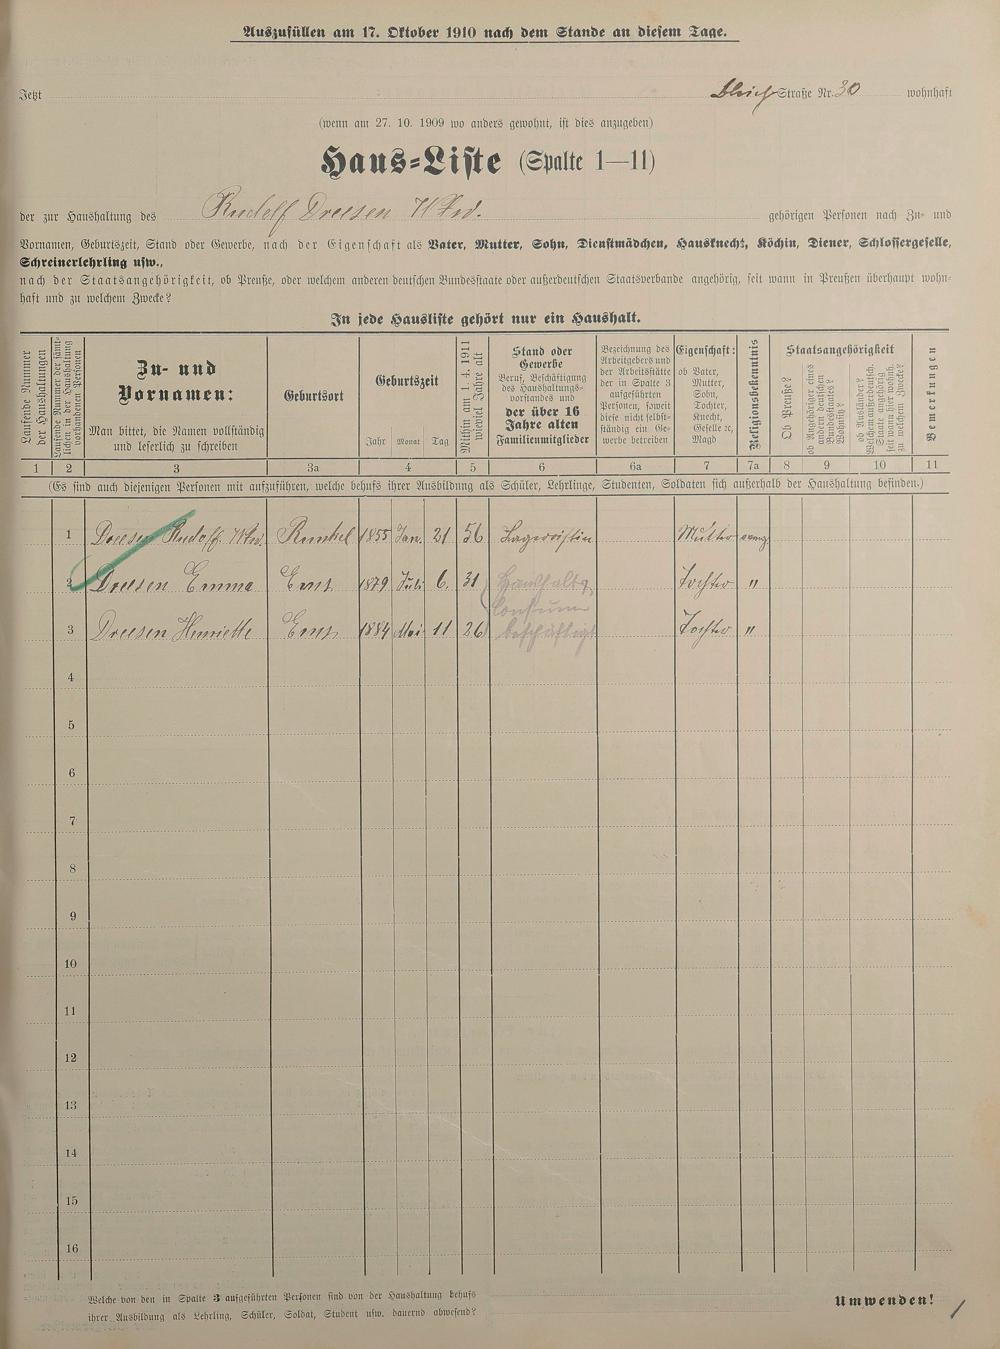 Auszufüllen am 17. Oktober 1910 nach dem Stande an diesem Tage.
Jetzt Bleich Straße Nr. 30 wohnhaft
(wenn am 27. 10. 1909 wo anders gewohnt, ist dies anzugeben)
Haus-Liste (Spalte 1—11)
der zur Haushaltung des Rudolf Dreesen Wwe. gehörigen Personen nach Zu- und
Vornamen, Geburtszeit, Stand oder Gewerbe, nach der Eigenschaft als Vater, Mutter, Sohn, Dienstmädchen, Hausknecht, Köchin, Diener, Schlossergeselle,
Schreinerlehrling usw.,
nach der Staatsangehörigkeit, ob Preuße, oder welchem anderen deutschen Bundesstaate oder außerdeutschen Staatsverbande angehörig, seit wann in Preußen überhaupt wohn-
haft und zu welchem Zwecke?
In jede Hausliste gehört nur ein Haushalt.
Laufende Nummer
der Haushaltungen
Laufende Nummer der sämt-
lichen in der Haushaltung
vorhandenen Personen
Zu- und
Vornamen:
Man bittet, die Namen vollständig
und leserlich zu schreiben
Geburtsort
Geburtszeit
Jahr Monat Tag
Mithin am 1. 4. 1911
wieviel Jahre alt
Stand oder
Gewerbe
Beruf, Beschäftigung
des Haushaltungs-
vorstandes und
der über 16
Jahre alten
Familienmitglieder
Bezeichnung des
Arbeitgebers und
der Arbeitsstätte
der in Spalte 3
aufgeführten
Personen, soweit
diese nicht selbst-
ständig ein Ge-
werbe betreiben
Eigenschaft:
ob Vater,
Mutter,
Sohn,
Tochter,
Knecht,
Geselle ꝛc,
Magd
Religionsbekenntnis
Staatsangehörigkeit
Ob Preuße?
ob Angehöriger eines
andern deutschen
Bundesstaates?
Wohnsitz?
ob Ausländer?
Welchem außerdeutsch.
Staate angehörig
seit wann hier wohnh.
zu welchem Zwecke?
Bemerkungen
1 2 3 3a 4 5 6 6a 7 7a 8 9 10 11
(Es sind auch diejenigen Personen mit aufzuführen, welche behufs ihrer Ausbildung als Schüler, Lehrlinge, Studenten, Soldaten sich außerhalb der Haushaltung befinden.)
1 Dreesen Rudolf Wwe. Runkel 1855 Jan. 21 56 Mutter evang.
2 Dreesen Emma Ems 1879 Juli 6. 31 Tochter "
3 Dreesen Henriette Ems 1884 Mai 11 26 beschäftigt Tochter "
4
5
6
7
8
9
10
11
12
13
14
15
16
Welche von den in Spalte 3 aufgeführten Personen sind von der Haushaltung behufs
ihrer Ausbildung als Lehrling, Schüler, Soldat, Student usw. dauernd abwesend?
Umwenden!